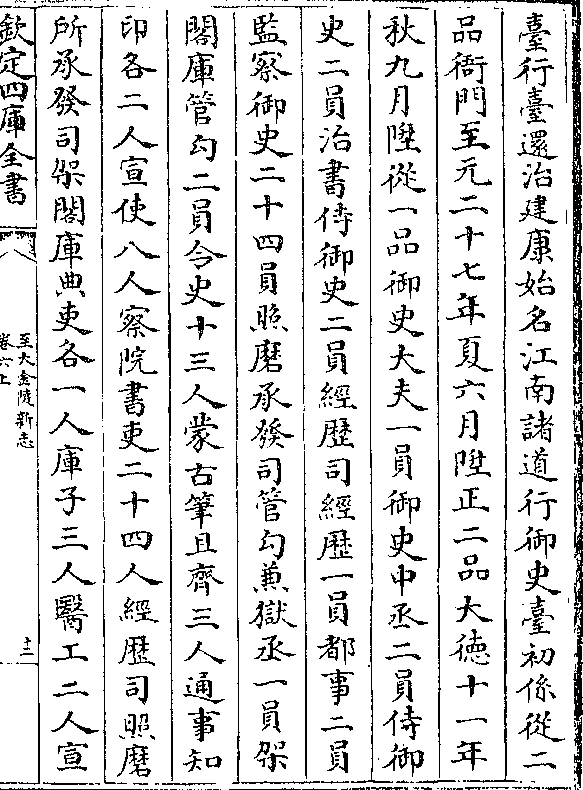 臺行臺還治建康始名江南諸道行御史臺初係從二
品衙門至元二十七年夏六月陞正二品大徳十一年
秋九月陞從一品御史大夫一員御史中丞二員侍御
史二員治書侍御史二員經歴司經歴一員都事二員
監察御史二十四員照磨承發司管勾兼獄丞一員架
閣庫管勾二員令史十三人蒙古筆且齊三人通事知
印各二人宣使八人察院書吏二十四人經歴司照磨
所承發司架閣庫典吏各一人庫子三人醫工二人宣
欽定四庫全書
至大金陵新志
卷六上
十二